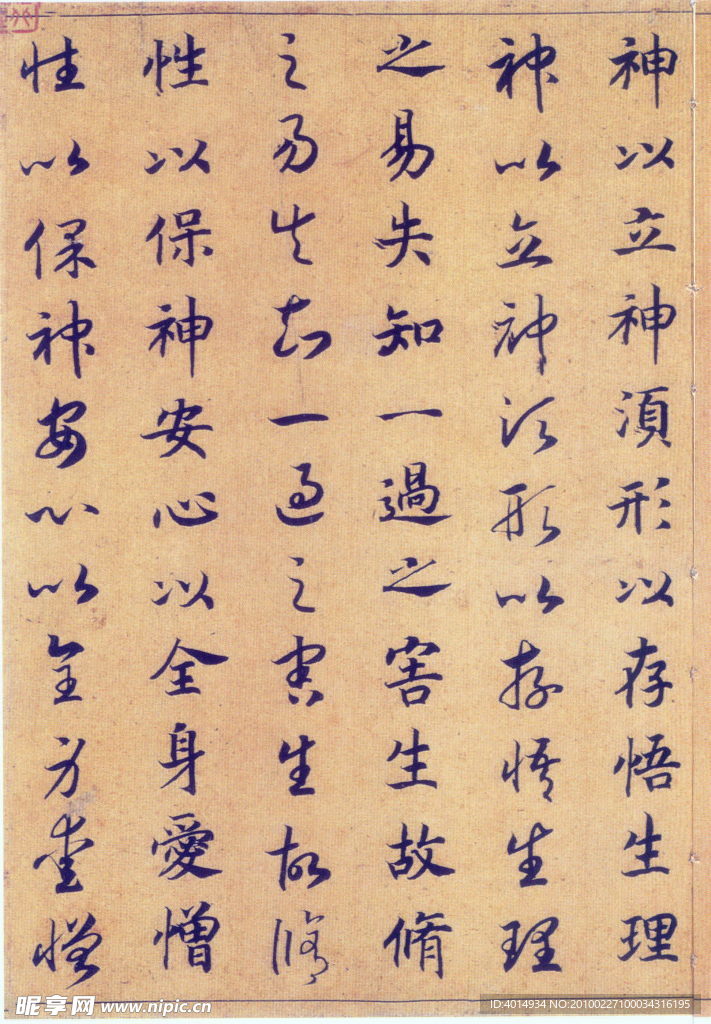 神以立神須形以存悟生理
神以立神須形以存悟生理
之易失知一過之害生故脩
之易失知一過之害生故脩
性以保神安心以全身愛憎
性以保神安心以全身愛憎
昵享网 www.nipic.cn
ID:4014934 NO:20100227100034316195